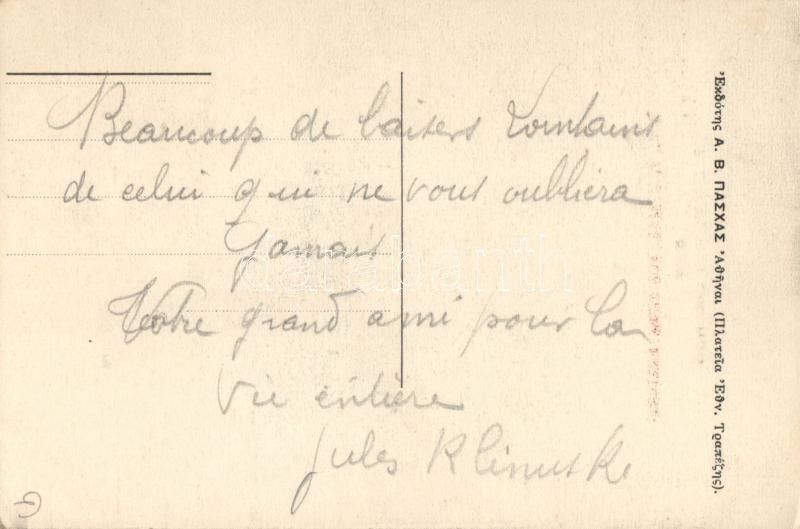 Beaucoup de baisers lointains
de celui qui ne vous oubliera
jamais
Votre grand ami pour la
vie entière
Jules
Ἐκδότης Α. Β. ΠΑΣΧΑΣ Ἀθῆναι (Πλατεῖα Ἐθν. Τραπέζης).
darabanth